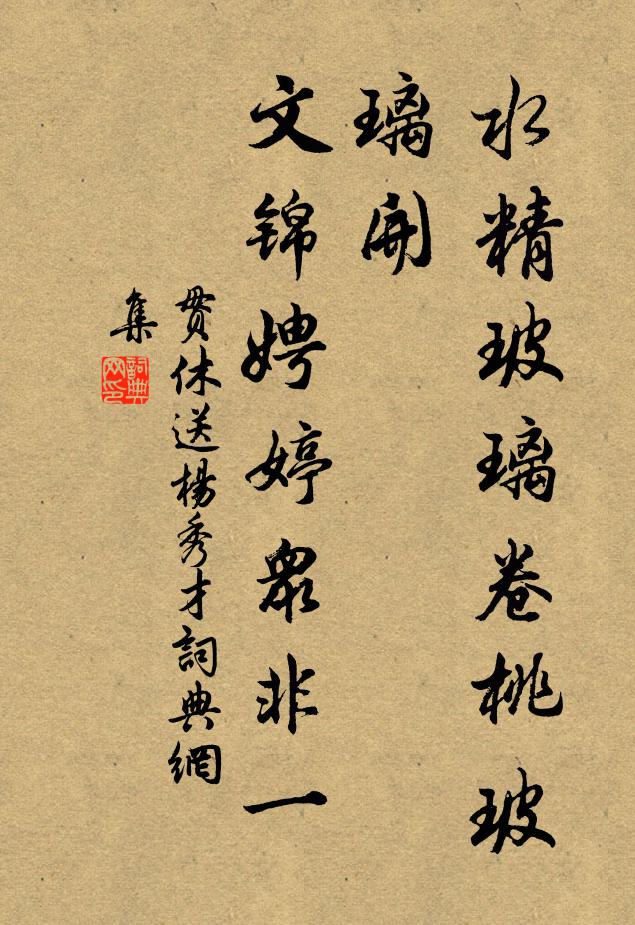 水精玻璃卷桃玻
璃開
文锦娉婷眾非一
貫休送楊秀才詞典網
集
詞典
网印